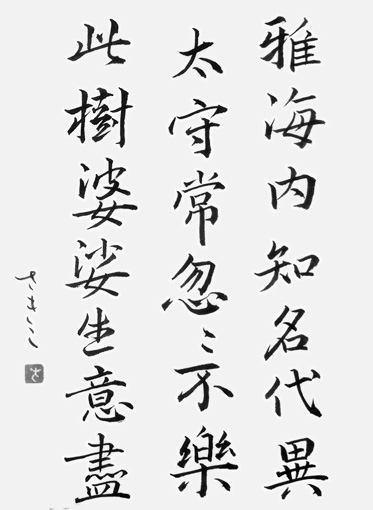 雅海内知名代異
太守常忽〻不樂
此樹婆娑生意盡
さきこ